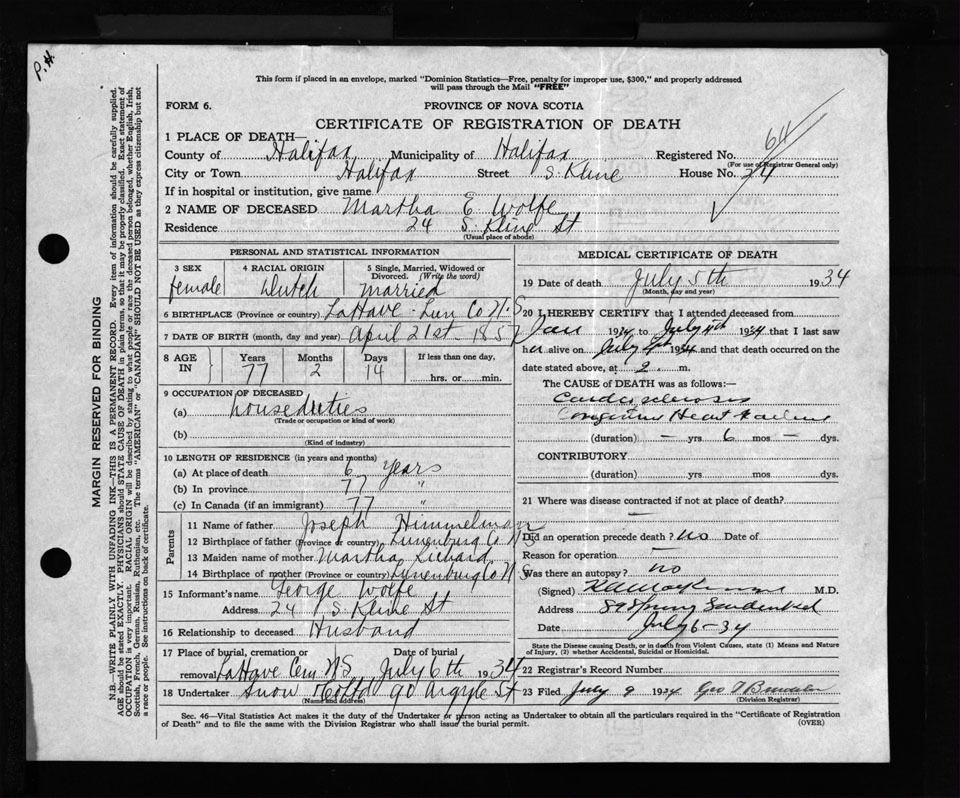 P.H.
This form if placed in an envelope, marked "Dominion Statistics—Free, penalty for improper use, $300," and properly addressed
will pass through the Mail "FREE"
FORM 6.
PROVINCE OF NOVA SCOTIA
CERTIFICATE OF REGISTRATION OF DEATH
1 PLACE OF DEATH—
64
County of Halifax Municipality of Halifax Registered No.
(For use of Registrar General only)
City or Town Halifax Street S. Kline House No. 24
If in hospital or institution, give name
2 NAME OF DECEASED Martha E. Wolfe
Residence 24 S. Kline St
(Usual place of abode)
PERSONAL AND STATISTICAL INFORMATION
3 SEX female
4 RACIAL ORIGIN Dutch
5 Single, Married, Widowed or Divorced. (Write the word) Married
6 BIRTHPLACE (Province or country) LaHave Lun Co N.S
7 DATE OF BIRTH (month, day and year) April 21st 1857
8 AGE IN Years 77 Months 2 Days 14 If less than one day, hrs. or min.
9 OCCUPATION OF DECEASED
(a) houseduties
(Trade or occupation or kind of work)
(b)
(Kind of industry)
10 LENGTH OF RESIDENCE (in years and months)
(a) At place of death 6 years
(b) In province 77 "
(c) In Canada (if an immigrant) 77 "
Parents
11 Name of father Joseph Himmelman
12 Birthplace of father (Province or country) Lunenburg Co N S
13 Maiden name of mother Martha
14 Birthplace of mother (Province or country) Lunenburg Co N S
15 Informant's name George Wolfe
Address 24 S. Kline St
16 Relationship to deceased Husband
17 Place of burial, cremation or removal LaHave Cem N.S. Date of burial July 6th 1934
18 Undertaker Snow 90 Argyle St
(Name and address)
MEDICAL CERTIFICATE OF DEATH
19 Date of death July 5th 1934
(Month, day and year)
20 I HEREBY CERTIFY that I attended deceased from
Jan 1934 to July 4th 1934 that I last saw
her alive on July 1934 and that death occurred on the
date stated above, at 2 m.
The CAUSE of DEATH was as follows:—
Cardio sclerosis
Congestive Heart Failure
(duration) — yrs 6 mos — dys.
CONTRIBUTORY
(duration) yrs. mos. dys.
21 Where was disease contracted if not at place of death?
—
Did an operation precede death? No Date of
Reason for operation —
Was there an autopsy? no
(Signed) M.D.
Address 89 Spring
Date July 6-34
State the Disease causing Death, or in death from Violent Causes, state (1) Means and Nature
of Injury, (2) whether Accidental, Suicidal or Homicidal.
22 Registrar's Record Number
23 Filed July 9 1934 Geo
(Division Registrar)
Sec. 46—Vital Statistics Act makes it the duty of the Undertaker or person acting as Undertaker to obtain all the particulars required in the "Certificate of Registration
of Death" and to file the same with the Division Registrar who shall issue the burial permit. (OVER)
MARGIN RESERVED FOR BINDING
N.B.—WRITE PLAINLY WITH UNFADING INK—THIS IS A PERMANENT RECORD. Every item of information should be carefully supplied.
AGE should be stated EXACTLY. PHYSICIANS should STATE CAUSE OF DEATH in plain terms, so that it may be properly classified. Exact statement of
OCCUPATION is very important. RACIAL ORIGIN will be described by stating to what people or race the deceased person belonged, whether English, Irish,
Scottish, French, German, Russian, Ruthenian, etc. The terms "AMERICAN" or "CANADIAN" SHOULD NOT BE USED as they express citizenship but not
a race or people. See instructions on back of certificate.